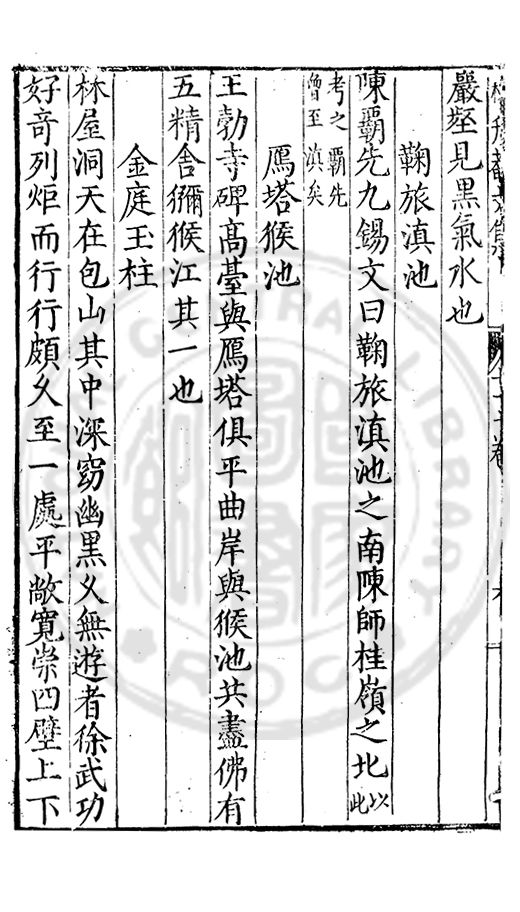 嚴壑見黑氣水也
鞠旅滇池
陳霸先九錫文曰鞠旅滇池之南陳師桂嶺之北以此
考之霸先
曾至滇矣
鴈塔猴池
王勃寺碑髙臺與鴈塔俱平曲岸與猴池共盡佛有
五精舍獼猴江其一也
金庭玉柱
林屋洞天在包山其中深窈幽黑久無遊者徐武功
好奇列炬而行行頗久至一處平敞寛崇四壁上下